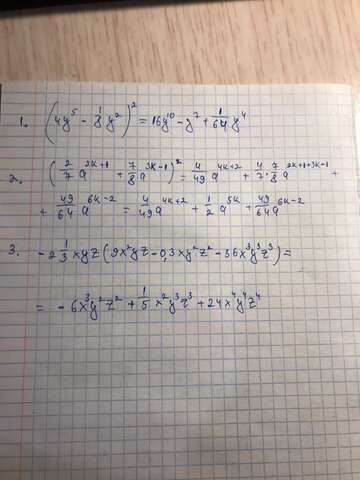 1. (4y⁵ - 1/8 y²)² = 16y¹⁰ - y⁷ + 1/64 y⁴
2. (2/7 a²ᵏ⁺¹ + 7/8 a³ᵏ⁻¹)² = 4/49 a⁴ᵏ⁺² + 4/7 · 7/8 a²ᵏ⁺¹⁺³ᵏ⁻¹ +
+ 49/64 a⁶ᵏ⁻² = 4/49 a⁴ᵏ⁺² + 1/2 a⁵ᵏ + 49/64 a⁶ᵏ⁻²
3. -2 1/3 xyz (9x²yz - 0,3xy²z² - 36x³y³z³) =
= - 6x³y²z² + 1/5 x²y³z³ + 24x⁴y⁴z⁴